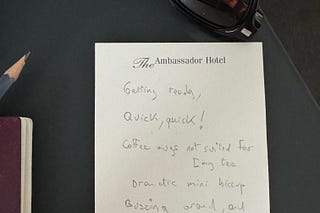 The Ambassador Hotel
Getting ready,
Quick, quick!
Coffee mugs not suited for
tea
Dramatic mini hiccup
Buzzing around, and